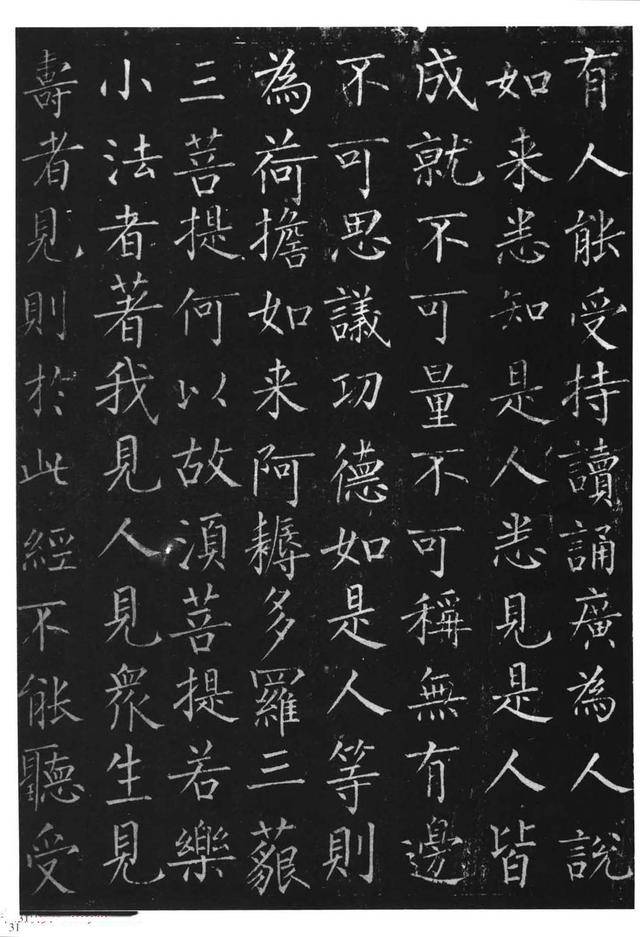 有人能受持讀誦廣為人說
如来悉知是人悉見是人皆
成就不可量不可稱無有邊
不可思議功德如是人等則
為荷擔如来阿耨多羅三藐
三菩提何以故湏菩提若樂
小法者著我見人見衆生見
壽者見則於此經不能聽受
31